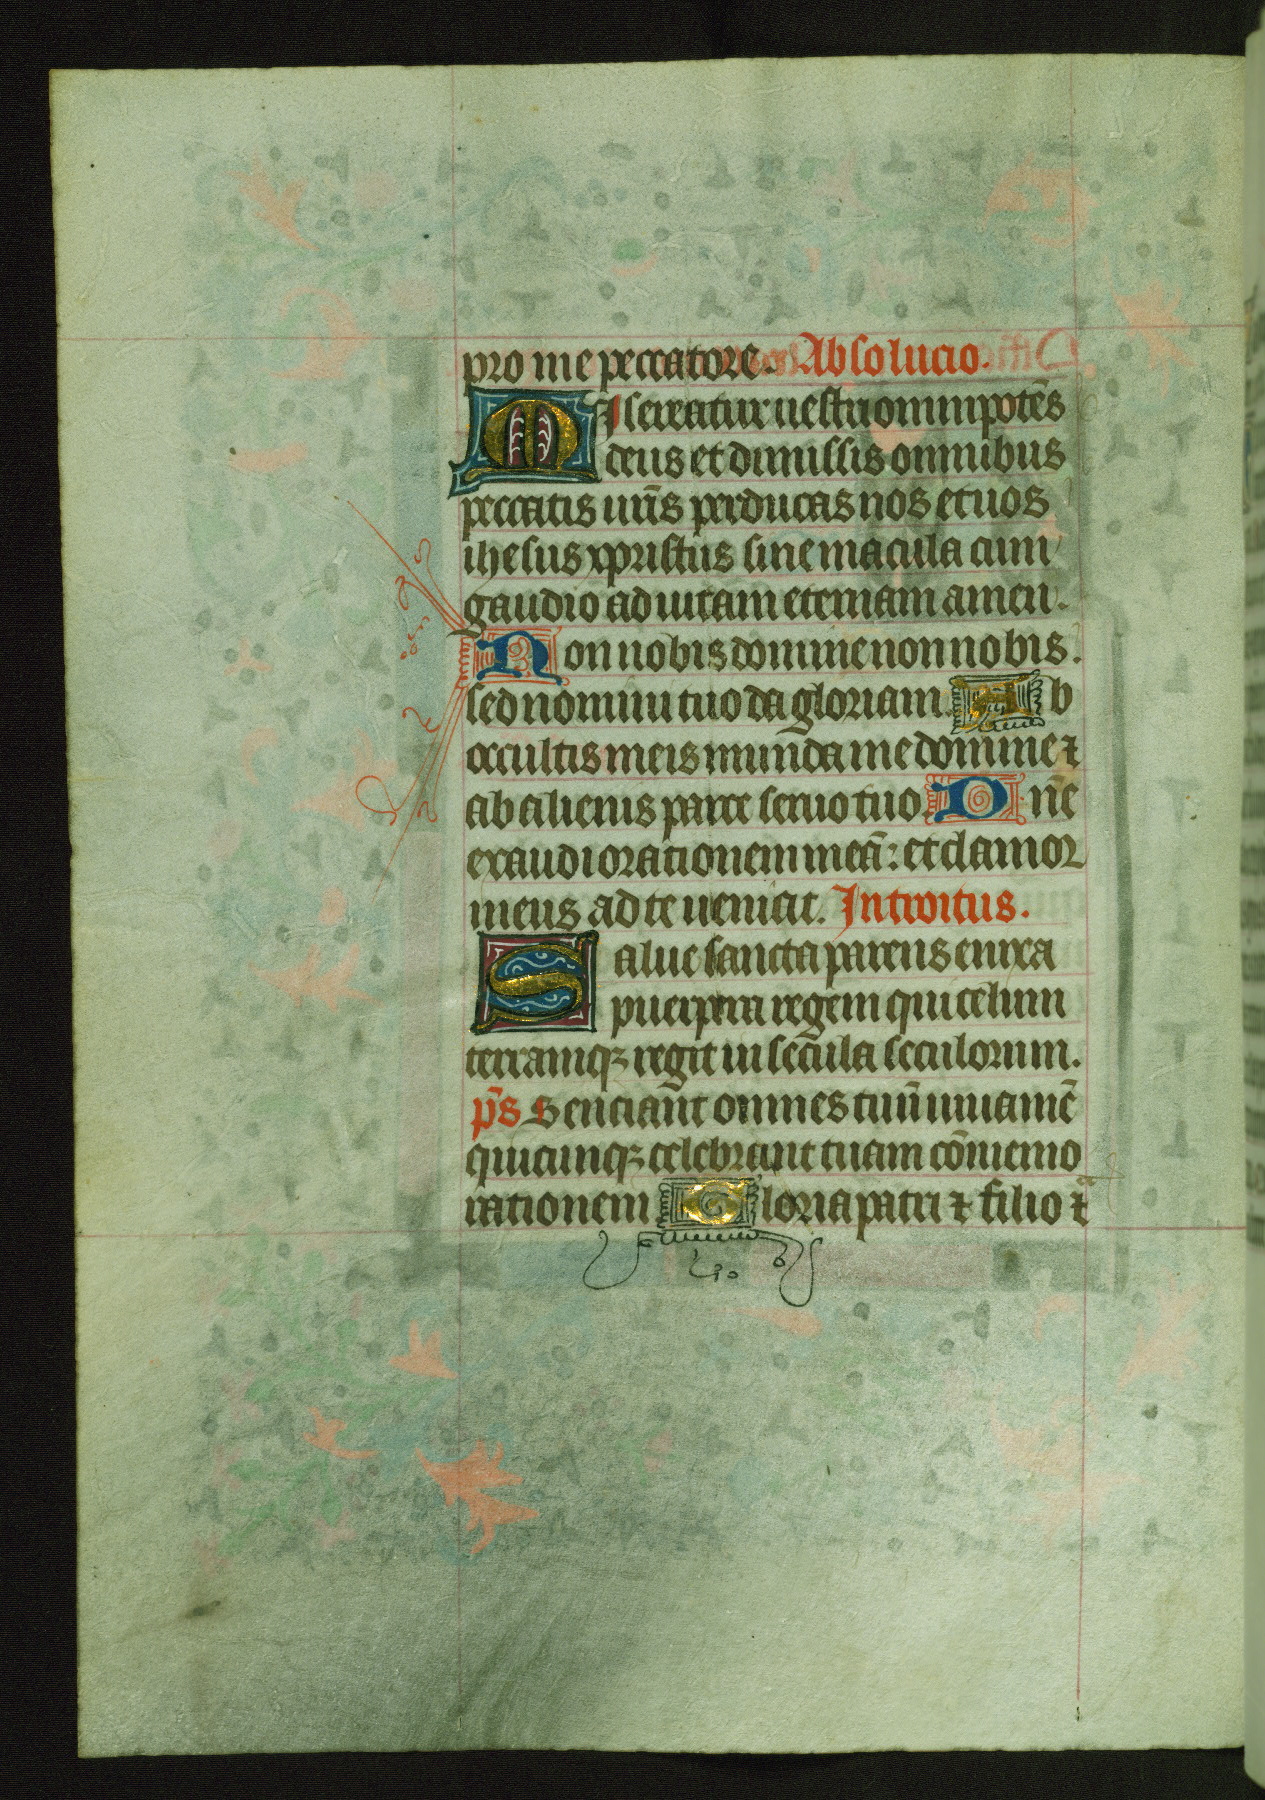 pro me peccatore. Absolucio.
MIsereatur uestri omnipotēs
deus et dimissis omnibus
peccatis ur̄is perducas nos et uos
ihesus xpristus sine macula cum
gaudio ad uitam eternam amen.
Non nobis domine non nobis.
sed nomini tuo da gloriam. Ab
occultis meis munda me domine ⁊
ab alienis parce seruo tuo. Dn̄e
exaudi orationem meā: et clamor
meus ad te ueniat. Introitus.
Salue sancta parens enixa
puerpera regem qui celum
terramqꝫ regit in secula seculorum.
p̄s Senciant omnes tuū iuuamē
quicunqꝫ celebrant tuam cōmemo
rationem Gloria patri ⁊ filio ⁊